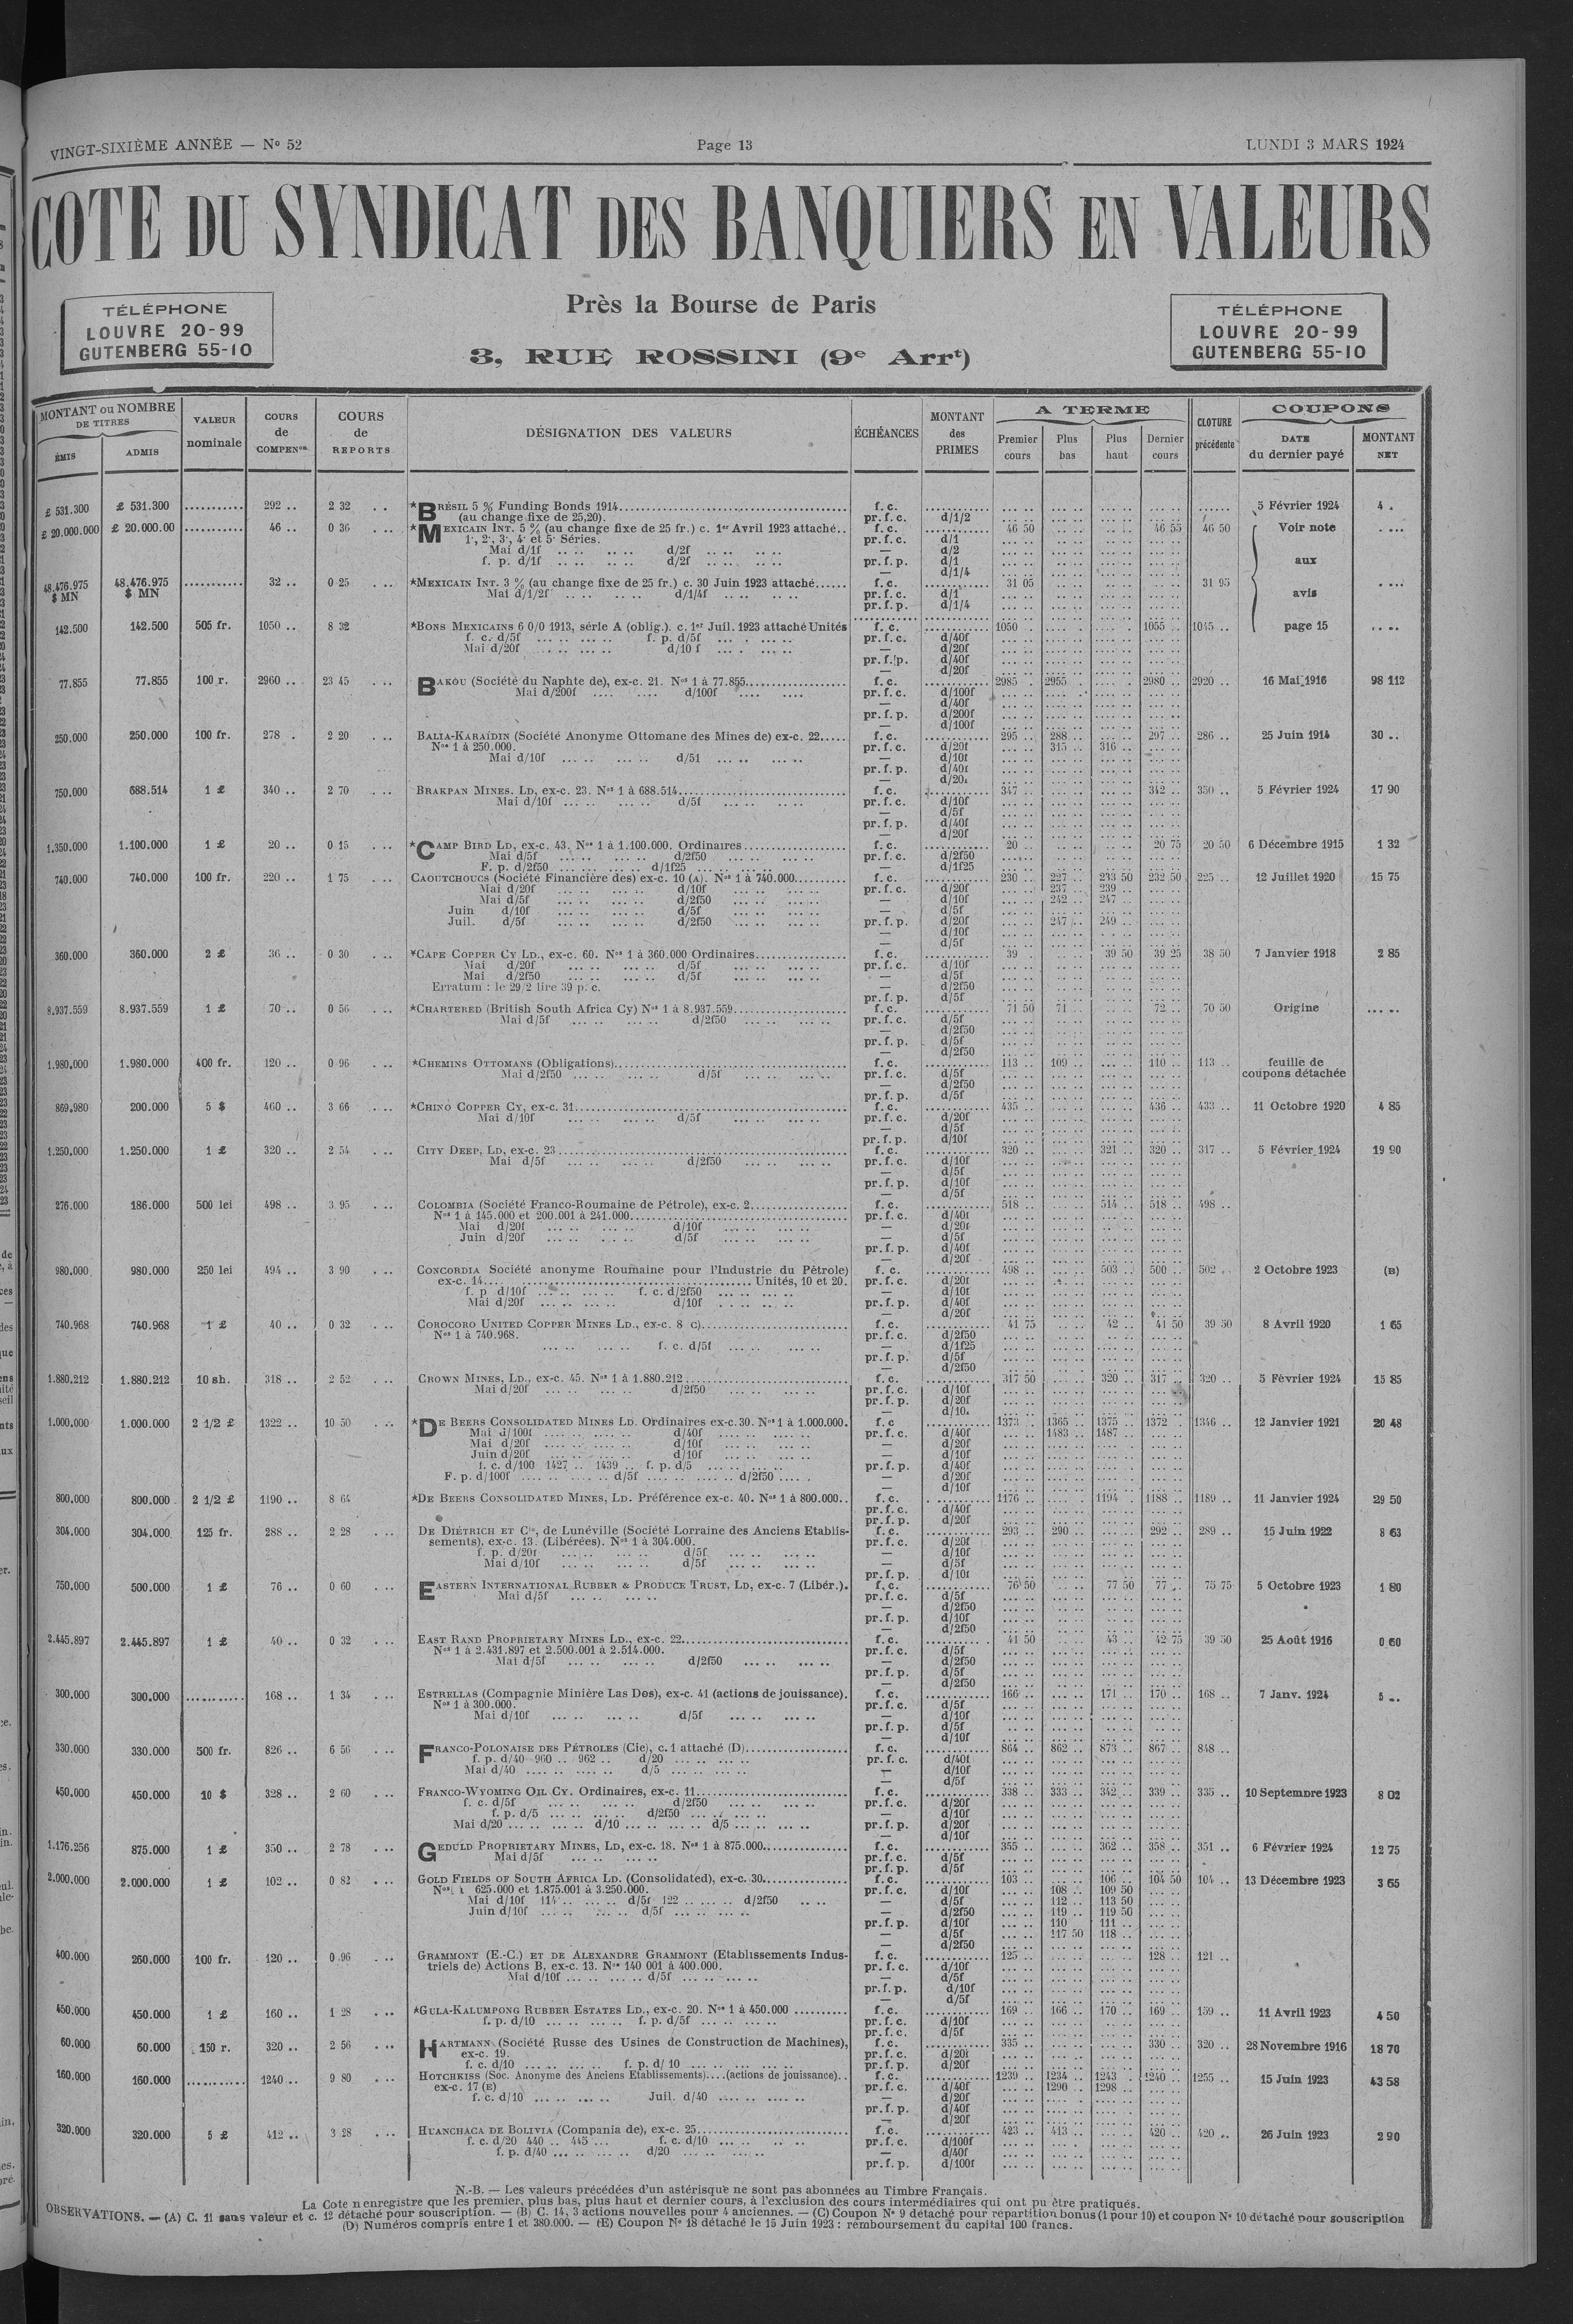 VINGT-SIXIÈME ANNÉE — No 52 Page 13 LUNDI 3 MARS 1924
COTE DU SYNDICAT DES BANQUIERS EN VALEURS
Près la Bourse de Paris
3, RUE ROSSINI (9e Arrt)
TÉLÉPHONE
LOUVRE 20-99
GUTENBERG 55-10
TÉLÉPHONE
LOUVRE 20-99
GUTENBERG 55-10
MONTANT ou NOMBRE DE TITRES ÉMIS ADMIS VALEUR nominale COURS de COMPENon COURS de REPORTS DÉSIGNATION DES VALEURS ÉCHÉANCES MONTANT des PRIMES A TERME Premier cours Plus bas Plus haut Dernier cours CLOTURE précédente COUPONS DATE du dernier payé MONTANT NET
£ 531.300 £ 531.300 292 .. 2 32 *BRÉSIL 5 % Funding Bonds 1914 f. c. 5 Février 1924 4 .
(au change fixe de 25,20). pr. f. c. d/1/2
£ 20.000.000 £ 20.000.00 46 .. 0 36 *MEXICAIN INT. 5 % (au change fixe de 25 fr.) c. 1er Avril 1923 attaché.. f. c. 46 50 46 55 46 50 Voir note
1·, 2·, 3·, 4· et 5· Séries. pr. f. c. d/1
Mai d/1f d/2f — d/2
f. p. d/1f d/2f pr. f. p. d/1 aux
— d/1/4
48.476.975 $ MN 48.476.975 $ MN 32 .. 0 25 *MEXICAIN INT. 3 % (au change fixe de 25 fr.) c. 30 Juin 1923 attaché f. c. 31 05 31 95
Mai d/1/2f d/1/4f pr. f. c. d/1 avis
pr. f. p. d/1/4
142.500 142.500 505 fr. 1050 .. 8 32 *BONS MEXICAINS 6 0/0 1913, série A (oblig.). c. 1er Juil. 1923 attaché Unités f. c. 1050 1055 .. 1045 .. page 15
f. c. d/5f f. p. d/5f pr. f. c. d/40f
Mai d/20f d/10 f — d/20f
pr. f. p. d/40f
— d/20f
77.855 77.855 100 r. 2960 .. 23 45 BAKOU (Société du Naphte de), ex-c. 21. Nos 1 à 77.855 f. c. 2985 2955 2980 .. 2920 .. 16 Mai 1916 98 112
Mai d/200f d/100f pr. f. c. d/100f
— d/40f
pr. f. p. d/200f
— d/100f
250.000 250.000 100 fr. 278 . 2 20 BALIA-KARAÏDIN (Société Anonyme Ottomane des Mines de) ex-c. 22 f. c. 295 .. 288 .. 297 .. 286 .. 25 Juin 1914 30 ..
Nos 1 à 250.000. pr. f. c. d/20f 315 .. 316 ..
Mai d/10f d/5f — d/10f
pr. f. p. d/40f
— d/20f
750.000 688.514 1 £ 340 .. 2 70 BRAKPAN MINES. LD, ex-c. 23. Nos 1 à 688.514 f. c. 347 342 .. 350 .. 5 Février 1924 17 90
Mai d/10f d/5f pr. f. c. d/10f
— d/5f
pr. f. p. d/40f
— d/20f
1.350.000 1.100.000 1 £ 20 .. 0 15 *CAMP BIRD LD, ex-c. 43. Nos 1 à 1.100.000. Ordinaires f. c. 20 .. 20 75 20 50 6 Décembre 1915 1 32
Mai d/5f d/2f50 pr. f. c. d/2f50
F. p. d/2f50 d/1f25 — d/1f25
740.000 740.000 100 fr. 220 .. 1 75 CAOUTCHOUCS (Société Financière des) ex-c. 10 (A). Nos 1 à 740.000 f. c. 230 .. 227 .. 233 50 232 50 225 .. 12 Juillet 1920 15 75
Mai d/20f d/10f pr. f. c. d/20f 237 .. 239 ..
Mai d/5f d/2f50 — d/10f 242 .. 247 ..
Juin d/10f d/5f — d/5f
Juil. d/5f d/2f50 pr. f. p. d/20f 247 .. 249 ..
— d/10f
— d/5f
360.000 360.000 2 £ 36 .. 0 30 *CAPE COPPER CY LD., ex-c. 60. Nos 1 à 360.000 Ordinaires f. c. 39 39 50 39 25 38 50 7 Janvier 1918 2 85
Mai d/20f d/5f pr. f. c. d/10f
Mai d/2f50 d/5f — d/5f
Erratum : le 29/2 lire 39 p. c. — d/2f50
pr. f. p. d/5f
8.937.559 8.937.559 1 £ 70 .. 0 56 *CHARTERED (British South Africa Cy) Nos 1 à 8.937.559 f. c. 71 50 71 .. 72 .. 70 50 Origine
Mai d/5f d/2f50 pr. f. c. d/5f
— d/2f50
pr. f. p. d/5f
— d/2f50
1.980.000 1.980.000 400 fr. 120 .. 0 96 *CHEMINS OTTOMANS (Obligations) f. c. 113 .. 109 .. 110 .. 113 .. feuille de
Mai d/2f50 d/5f pr. f. c. d/5f coupons détachée
— d/2f50
pr. f. p. d/5f
869.980 200.000 5 $ 460 .. 3 66 *CHINO COPPER CY, ex-c. 31 f. c. 435 436 .. 433 .. 11 Octobre 1920 4 85
Mai d/10f d/5f pr. f. c. d/20f
— d/5f
pr. f. p. d/10f
1.250.000 1.250.000 1 £ 320 .. 2 54 CITY DEEP, LD, ex-c. 23 f. c. 320 .. 321 .. 320 .. 317 .. 5 Février 1924 19 90
Mai d/5f d/2f50 pr. f. c. d/10f
— d/5f
pr. f. p. d/10f
— d/5f
276.000 186.000 500 lei 498 .. 3 95 COLOMBIA (Société Franco-Roumaine de Pétrole), ex-c. 2 f. c. 518 .. 514 .. 518 .. 498 ..
Nos 1 à 145.000 et 200.001 à 241.000 pr. f. c. d/40f
Mai d/20f d/10f — d/20f
Juin d/20f d/5f — d/5f
pr. f. p. d/40f
— d/20f
980.000 980.000 250 lei 494 .. 3 90 CONCORDIA Société anonyme Roumaine pour l'Industrie du Pétrole) f. c. 498 .. 503 .. 500 .. 502 .. 2 Octobre 1923 (B)
ex-c. 14 Unités, 10 et 20. pr. f. c. d/20f
f. p d/10f f. c. d/2f50 — d/10f
Mai d/20f d/10f pr. f. p. d/40f
— d/20f
740.968 740.968 1 £ 40 .. 0 32 COROCORO UNITED COPPER MINES LD., ex-c. 8 c) f. c. 41 75 42 .. 41 50 39 50 8 Avril 1920 1 65
Nos 1 à 740.968. pr. f. c. d/2f50
f. c. d/5f — d/1f25
pr. f. p. d/5f
— d/2f50
1.880.212 1.880.212 10 sh. 318 .. 2 52 CROWN MINES, LD., ex-c. 45. Nos 1 à 1.880.212 f. c. 317 50 320 .. 317 .. 320 .. 5 Février 1924 15 85
Mai d/20f d/2f50 pr. f. c. d/10f
pr. f. p. d/20f
— d/10f
1.000.000 1.000.000 2 1/2 £ 1322 .. 10 50 *DE BEERS CONSOLIDATED MINES LD. Ordinaires ex-c. 30. Nos 1 à 1.000.000. f. c 1373 .. 1365 .. 1375 .. 1372 .. 1346 .. 12 Janvier 1921 20 48
Mai d/100f d/40f pr. f. c. d/40f 1483 .. 1487 ..
Mai d/20f d/10f — d/20f
Juin d/20f d/10f — d/10f
f. c. d/100 1427 .. 1439 .. f. p. d/5 pr. f. p. d/40f
F. p. d/100f d/5f d/2f50 — d/20f
— d/10f
800.000 800.000 2 1/2 £ 1190 .. 8 64 *DE BEERS CONSOLIDATED MINES, LD. Préférence ex-c. 40. Nos 1 à 800.000.. f. c. 1176 .. 1194 . 1188 .. 1189 .. 11 Janvier 1924 29 50
pr. f. c. d/40f
pr. f. p. d/20f
304.000 304.000 125 fr. 288 .. 2 28 DE DIÉTRICH ET Cie, de Lunéville (Société Lorraine des Anciens Etablis- f. c. 293 .. 290 .. 292 .. 289 .. 15 Juin 1922 8 63
sements), ex-c. 13. (Libérées). Nos 1 à 304.000. pr. f. c. d/20f
f. p. d/20f d/5f — d/10f
Mai d/10f d/5f — d/5f
pr. f. p. d/10f
750.000 500.000 1 £ 76 .. 0 60 EASTERN INTERNATIONAL RUBBER & PRODUCE TRUST, LD, ex-c. 7 (Libér.). f. c. 76 50 77 50 77 .. 75 75 5 Octobre 1923 1 80
Mai d/5f pr. f. c. d/5f
— d/2f50
pr. f. p. d/10f
— d/2f50
2.445.897 2.445.897 1 £ 40 .. 0 32 EAST RAND PROPRIETARY MINES LD., ex-c. 22 f. c. 41 50 43 .. 42 75 39 50 25 Août 1916 0 60
Nos 1 à 2.431.897 et 2.500.001 à 2.514.000. pr. f. c. d/5f
Mai d/5f d/2f50 — d/2f50
pr. f. p. d/5f
— d/2f50
300.000 300.000 168 .. 1 34 ESTRELLAS (Compagnie Minière Las Dos), ex-c. 41 (actions de jouissance). f. c. 166 .. 171 .. 170 .. 168 .. 7 Janv. 1924 5 ..
Nos 1 à 300.000. pr. f. c. d/5f
Mai d/10f d/5f — d/10f
pr. f. p. d/5f
— d/10f
330.000 330.000 500 fr. 826 .. 6 56 FRANCO-POLONAISE DES PÉTROLES (Cie), c. 1 attaché (D) f. c. 864 .. 862 .. 873 .. 867 .. 848 ..
f. p. d/40 960 .. 962 .. d/20 pr. f. c. d/40f
Mai d/40 d/5 — d/10f
— d/5f
450.000 450.000 10 $ 328 .. 2 60 FRANCO-WYOMING OIL CY. Ordinaires, ex-c. 11 f. c. 338 .. 333 .. 342 .. 339 .. 335 .. 10 Septembre 1923 8 02
f. c. d/5f d/2f50 pr. f. c. d/20f
f. p. d/5 d/2f50 — d/10f
Mai d/20 d/10 d/5 pr. f. p. d/20f
— d/10f
1.176.256 875.000 1 £ 350 .. 2 78 GEDULD PROPRIETARY MINES, LD, ex-c. 18. Nos 1 à 875.000 f. c. 355 .. 362 .. 358 .. 351 .. 6 Février 1924 12 75
Mai d/5f pr. f. c. d/5f
pr. f. p. d/5f
2.000.000 2.000.000 1 £ 102 .. 0 82 GOLD FIELDS OF SOUTH AFRICA LD. (Consolidated), ex-c. 30 f. c. 103 .. 106 .. 104 50 104 .. 13 Décembre 1923 3 65
Nos 1 625.000 et 1.875.001 à 3.250.000. pr. f. c. d/10f 108 .. 109 50
Mai d/10f 114 .. d/5f 122 .. d/2f50 — d/5f 112 .. 113 50
Juin d/10f d/5f — d/2f50 119 .. 119 50
pr. f. p. d/10f 110 111 ..
— d/5f 117 50 118 ..
— d/2f50
400.000 260.000 100 fr. 120 .. 0 96 GRAMMONT (E.-C.) ET DE ALEXANDRE GRAMMONT (Etablissements Indus- f. c. 125 .. 128 .. 121 ..
triels de) Actions B, ex-c. 13. Nos 140 001 à 400.000. pr. f. c. d/10f
Mai d/10f d/5f — d/5f
pr. f. p. d/10f
— d/5f
450.000 450.000 1 £ 160 .. 1 28 *GULA-KALUMPONG RUBBER ESTATES LD., ex-c. 20. Nos 1 à 450.000 f. c. 169 166 .. 170 .. 169 .. 159 .. 11 Avril 1923 4 50
f. p. d/10 f. p. d/5f pr. f. c. d/10f
pr. f. c. d/5f
60.000 60.000 150 r. 320 .. 2 56 HARTMANN (Société Russe des Usines de Construction de Machines), f. c. 335 .. 330 .. 320 .. 28 Novembre 1916 18 70
ex-c. 19. pr. f. c. d/20f
f. c. d/10 f. p. d/ 10 pr. f. p. d/20f
160.000 160.000 1240 .. 9 80 HOTCHKISS (Soc. Anonyme des Anciens Etablissements)....(actions de jouissance).. f. c. 1239 .. 1234 .. 1243 . 1240 .. 1255 .. 15 Juin 1923 43 58
ex-c. 17 (E) pr. f. c. d/40f 1290 .. 1298 ..
f. c. d/10 Juil. d/40 — d/20f
pr. f. p. d/40f
— d/20f
320.000 320.000 5 £ 412 .. 3 28 HUANCHACA DE BOLIVIA (Compania de), ex-c. 25 f. c. 423 .. 413 .. 420 .. 420 .. 26 Juin 1923 2 90
f. c. d/20 440 .. 445 ... f. c. d/10 pr. f. c. d/100f
f. p. d/40 d/20 — d/40f
pr. f. p. d/100f
N.-B. — Les valeurs précédées d'un astérisque ne sont pas abonnées au Timbre Français.
La Cote n enregistre que les premier, plus bas, plus haut et dernier cours, à l'exclusion des cours intermédiaires qui ont pu être pratiqués.
OBSERVATIONS. — (A) C. 11 sans valeur et c. 12 détaché pour souscription. — (B) C. 14, 3 actions nouvelles pour 4 anciennes. — (C) Coupon No 9 détaché pour répartition bonus (1 pour 10) et coupon No 10 détaché pour souscription
(D) Numéros compris entre 1 et 380.000. — (E) Coupon No 18 détaché le 15 Juin 1923 : remboursement du capital 100 francs.